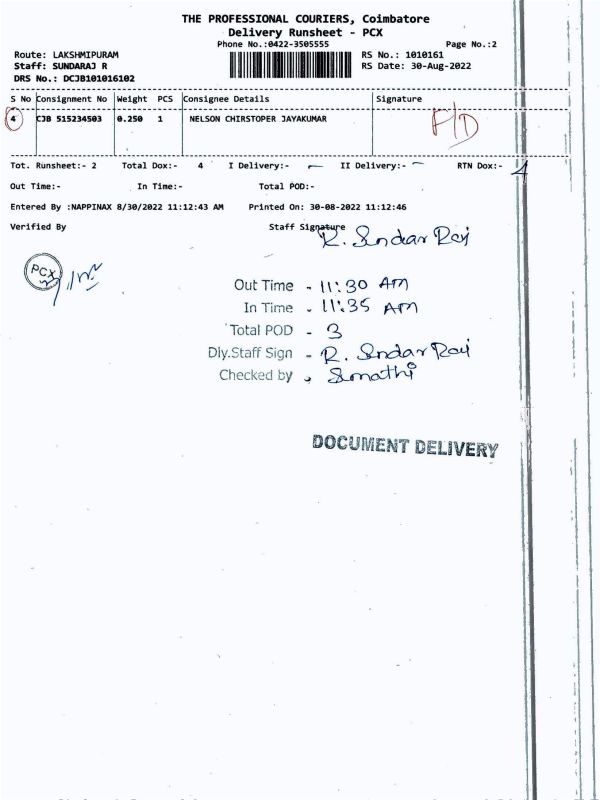 THE PROFESSIONAL COURIERS, Coimbatore
Delivery Runsheet - PCX
Phone No.:0422-3505555 Page No.:2
Route: LAKSHMIPURAM RS No.: 1010161
Staff: SUNDARAJ R RS Date: 30-Aug-2022
DRS No.: DCJB101016102
S No Consignment No Weight PCS Consignee Details Signature
4 CJB 515234503 0.250 1 NELSON CHIRSTOPER JAYAKUMAR F/D
Tot. Runsheet:- 2 Total Dox:- 4 I Delivery:- — II Delivery:- — RTN Dox:- 1
Out Time:- In Time:- Total POD:-
Entered By :NAPPINAX 8/30/2022 11:12:43 AM Printed On: 30-08-2022 11:12:46
Verified By Staff Signature
R. Sndar Raj
PCX
Out Time - 11:30 AM
In Time - 11:35 AM
Total POD - 3
Dly.Staff Sign - R. Sndar Raj
Checked by - Sumathi
DOCUMENT DELIVERY